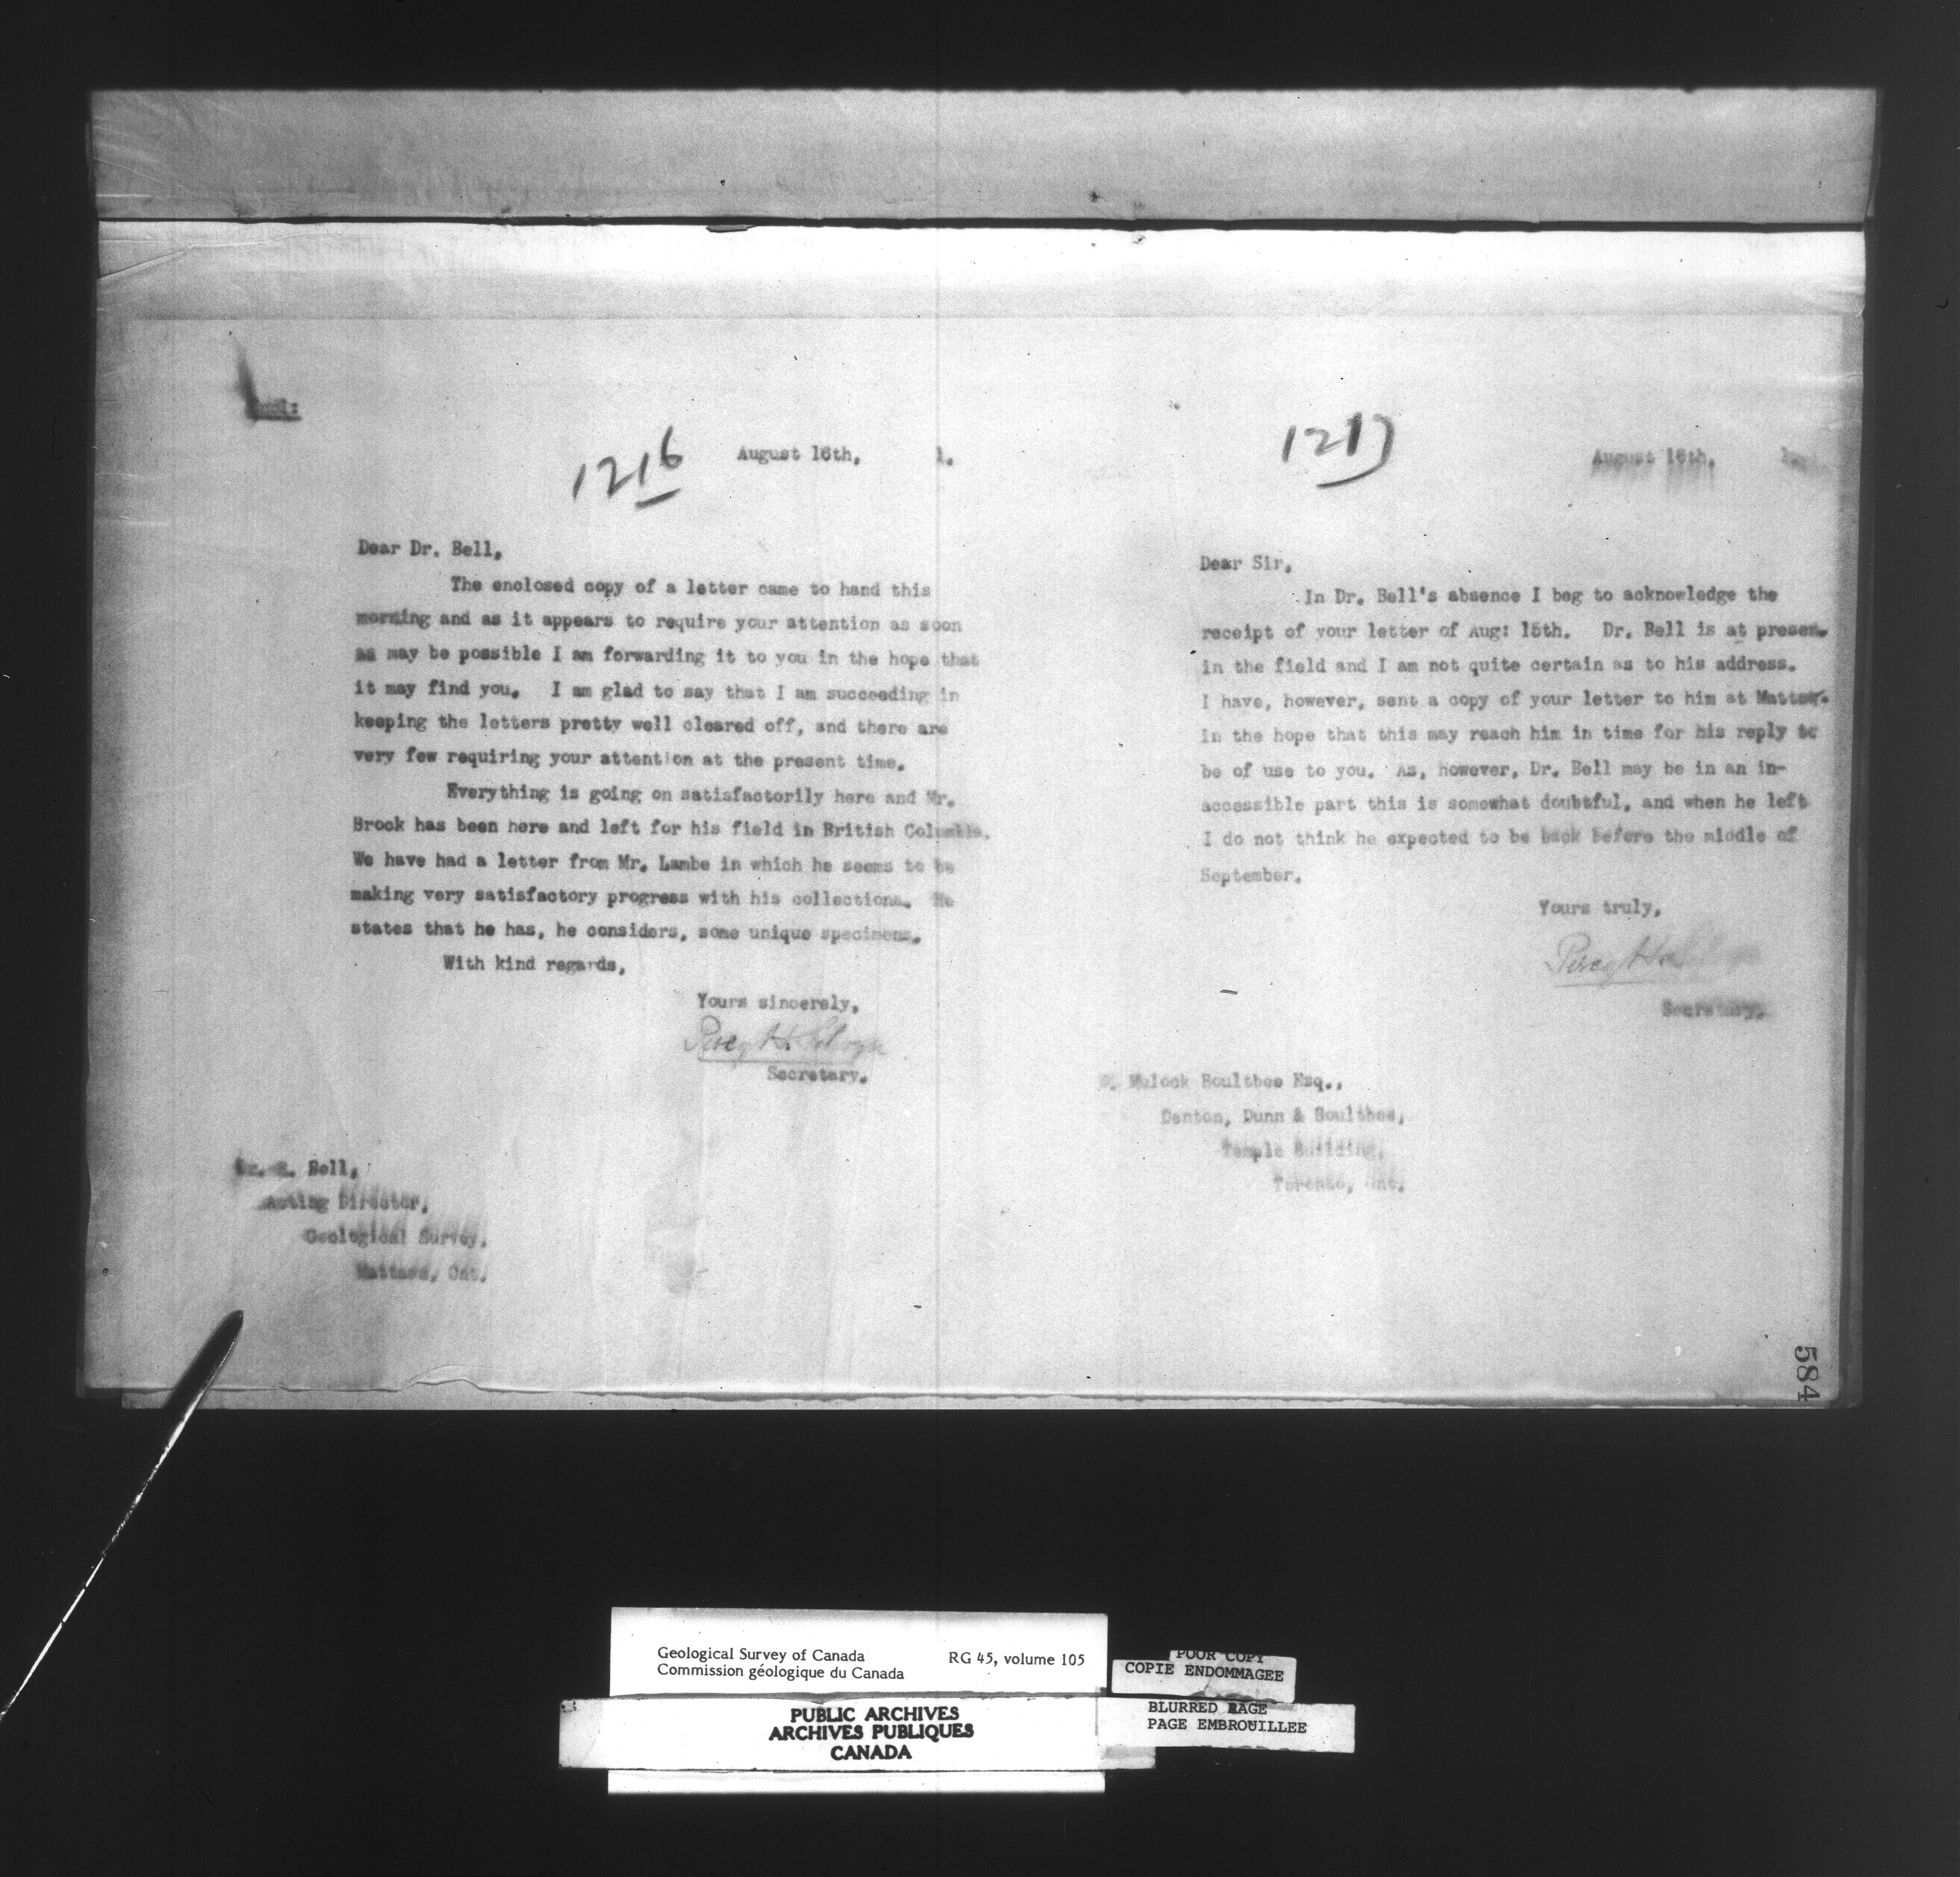 Encl:
1216
August 16th, 1.
Dear Dr. Bell,
The enclosed copy of a letter came to hand this
morning and as it appears to require your attention as soon
as may be possible I am forwarding it to you in the hope that
it may find you. I am glad to say that I am succeeding in
keeping the letters pretty well cleared off, and there are
very few requiring your attention at the present time.
Everything is going on satisfactorily here and Mr.
Brock has been here and left for his field in British Columbia.
We have had a letter from Mr. Lambe in which he seems to be
making very satisfactory progress with his collections. He
states that he has, he considers, some unique specimens.
With kind regards,
Yours sincerely,
Percy H. Selwyn
Secretary.
Dr. R. Bell,
Acting Director,
Geological Survey,
Mattawa, Ont.
1217
August 16th, 1.
Dear Sir,
In Dr. Bell's absence I beg to acknowledge the
receipt of your letter of Aug: 15th. Dr. Bell is at present
in the field and I am not quite certain as to his address.
I have, however, sent a copy of your letter to him at
in the hope that this may reach him in time for his reply to
be of use to you. As, however, Dr. Bell may be in an in-
accessible part this is somewhat doubtful, and when he left
I do not think he expected to be back before the middle of
September.
Yours truly,
Percy H.
Secretary.
Mulock Boultbee Esq.,
Denton, Dunn & Boultbee,
Temple Building,
Toronto, Ont.
584
Geological Survey of Canada
Commission géologique du Canada
RG 45, volume 105
PUBLIC ARCHIVES
ARCHIVES PUBLIQUES
CANADA
POOR COPY
COPIE ENDOMMAGEE
BLURRED PAGE
PAGE EMBROUILLEE